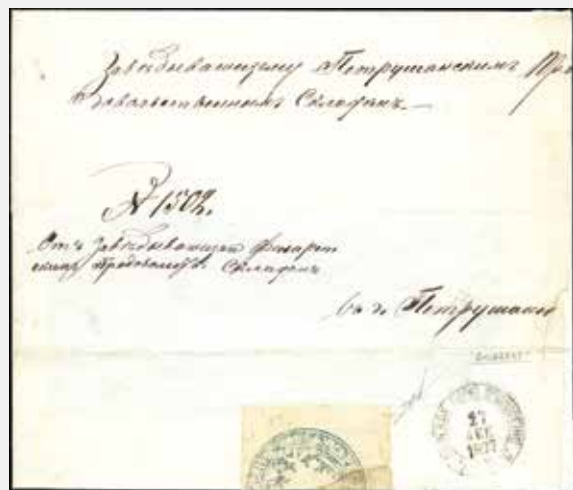 Завѣдывающему Петрушанскимъ Про
довольственнымъ Складомъ.—
№ 1502.
Отъ Завѣдывающаго
скимъ Продовольств. Складомъ
въ д. Петрушани
27
ДЕК
1877